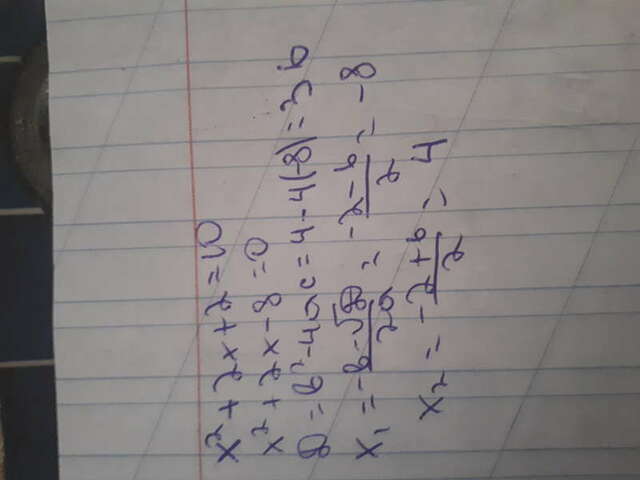 x² + 2x + 2 = 10
x² + 2x - 8 = 0
D = b² - 4ac = 4 - 4(-8) = 36
x₁ = (-b - √D)/2a = (-2 - 6)/2 = -8
x₂ = (-2 + 6)/2 = 4